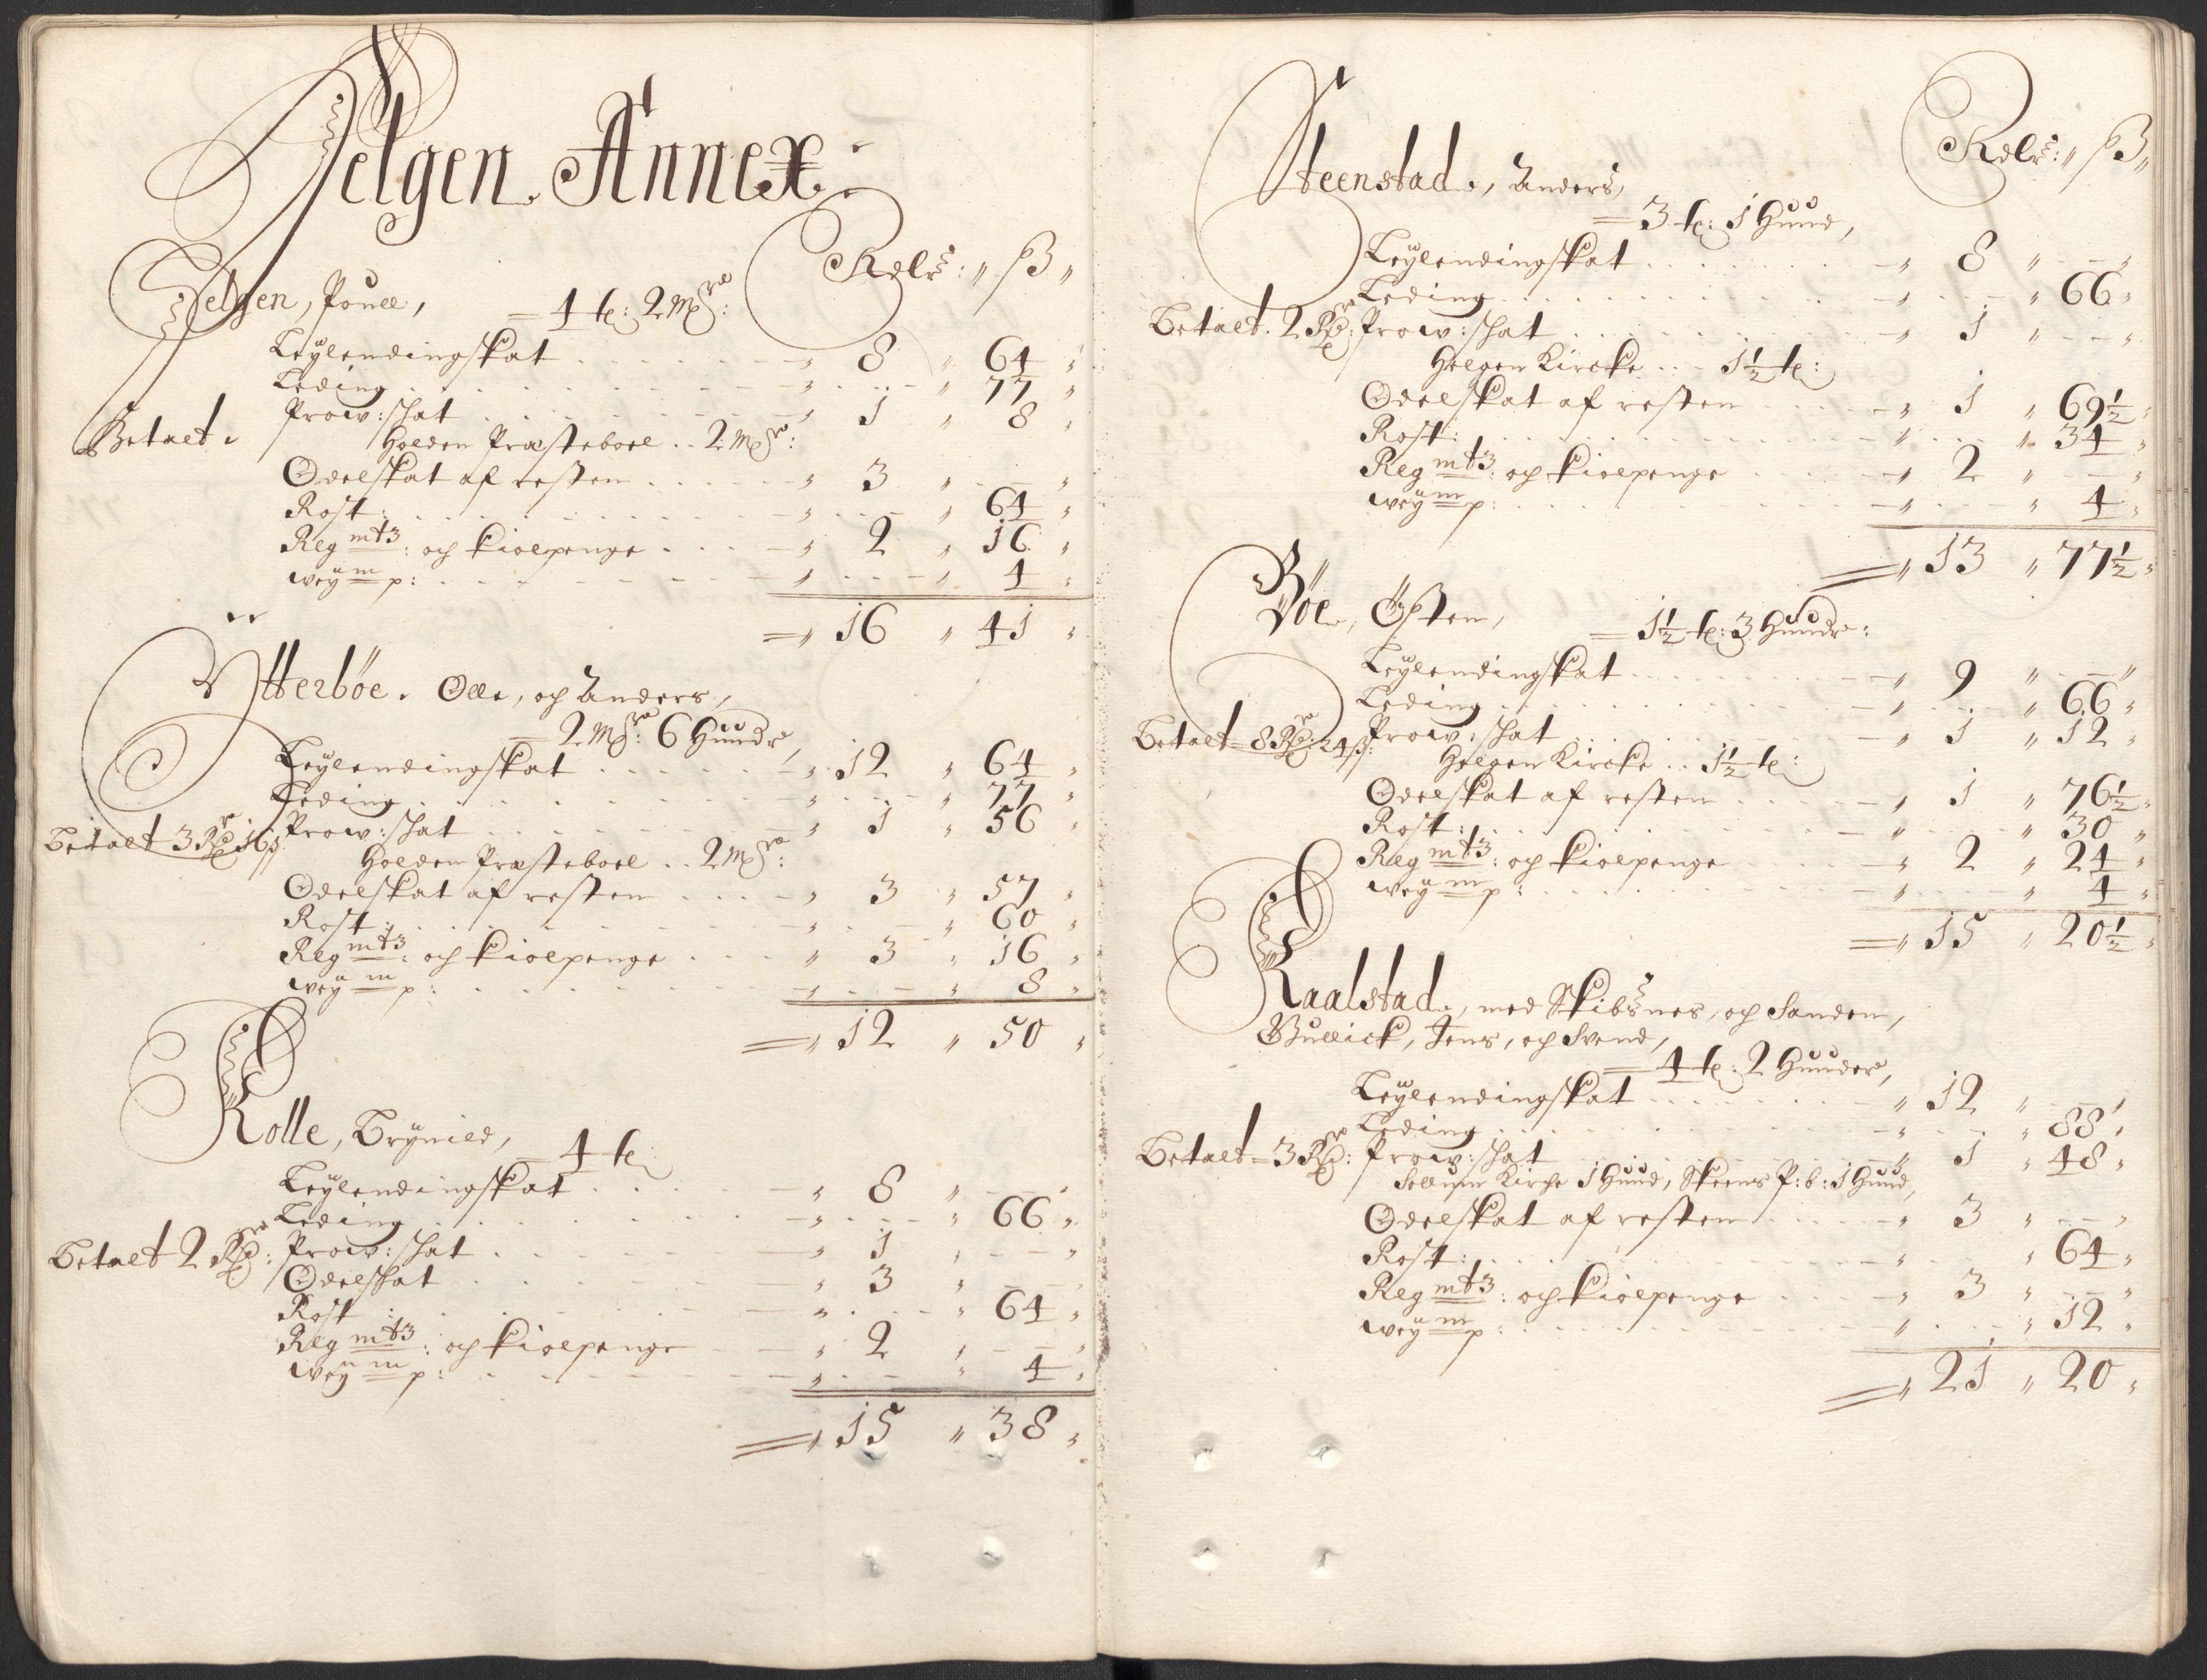 Helgen Annex
Rdlr: ß
Helgen, Pouel, = 4 te: 2 Mrc:
Leÿlendingskat 8 64
Leding 77
Betalt. Prow: skat 1 8
Holden Præsteboel .. 2 Mrc:
Odelskat af resten 3
Rost: 64
Reg mt3: och kiolpenge 2 16
weÿ m p: 4
= 16 41
Ÿtterböe. Olle, och Anders,
= 2 Mrc: 6 Hund
Leÿlendingskat 12 64
Leding 77
Betalt 3 Rdr 16 ß Prow: skat 1 56
Holden Præsteboel .. 2 Mrc:
Odelskat af resten 3 57
Rost: 60
Reg mt3: och kiolpenge 3 16
weÿ m p: 8
= 12 50
Kolle, Brÿnild, = 4 te
Leÿlendingskat 8
Leding 66
Betalt 2 Rdr: Prow: skat 1
Odelskat 3
Rost: 64
Reg mt3: och kiolpenge 2
weÿ m p: 4
= 15 38
Rdlr: ß
Steenstad, Anders,
= 3 te: 1 Hund,
Leÿlendingskat 8
Leding 66
Betalt. 2 Rdr: Prow: skat 1
Helgen Kircke .. 1½ te:
Odelskat af resten 1 69½
Rost: 34
Reg mt3: och kiolpenge 2
weÿ m p: 4
= 13 77½
Böe, Östen, = 1½ te: 3 Hundr:
Leÿlendingskat 9
Leding 66
Betalt = 8 Rdr: 24 ß: Prow: skat 1 12
Helgen Kircke .. 1½ te:
Odelskat af resten 1 76½
Rost: 30
Reg mt3: och kiolpenge 2 24
weÿ m p: 4
= 15 20½
Raalstad, med Skibsnes, och Sanden,
Gullick, Jens, och Svend,
= 4 te: 2 Hunder,
Leÿlendingskat 12
Leding 88
Betalt = 3 Rdr: Prow: skat 1 48
Sollum Kirche 1 Hund, Skeens P: b: 1 Hund,
Odelskat af resten 3
Rost: 64
Reg mt3: och kiolpenge 3
weÿ m p: 12
= 21 20